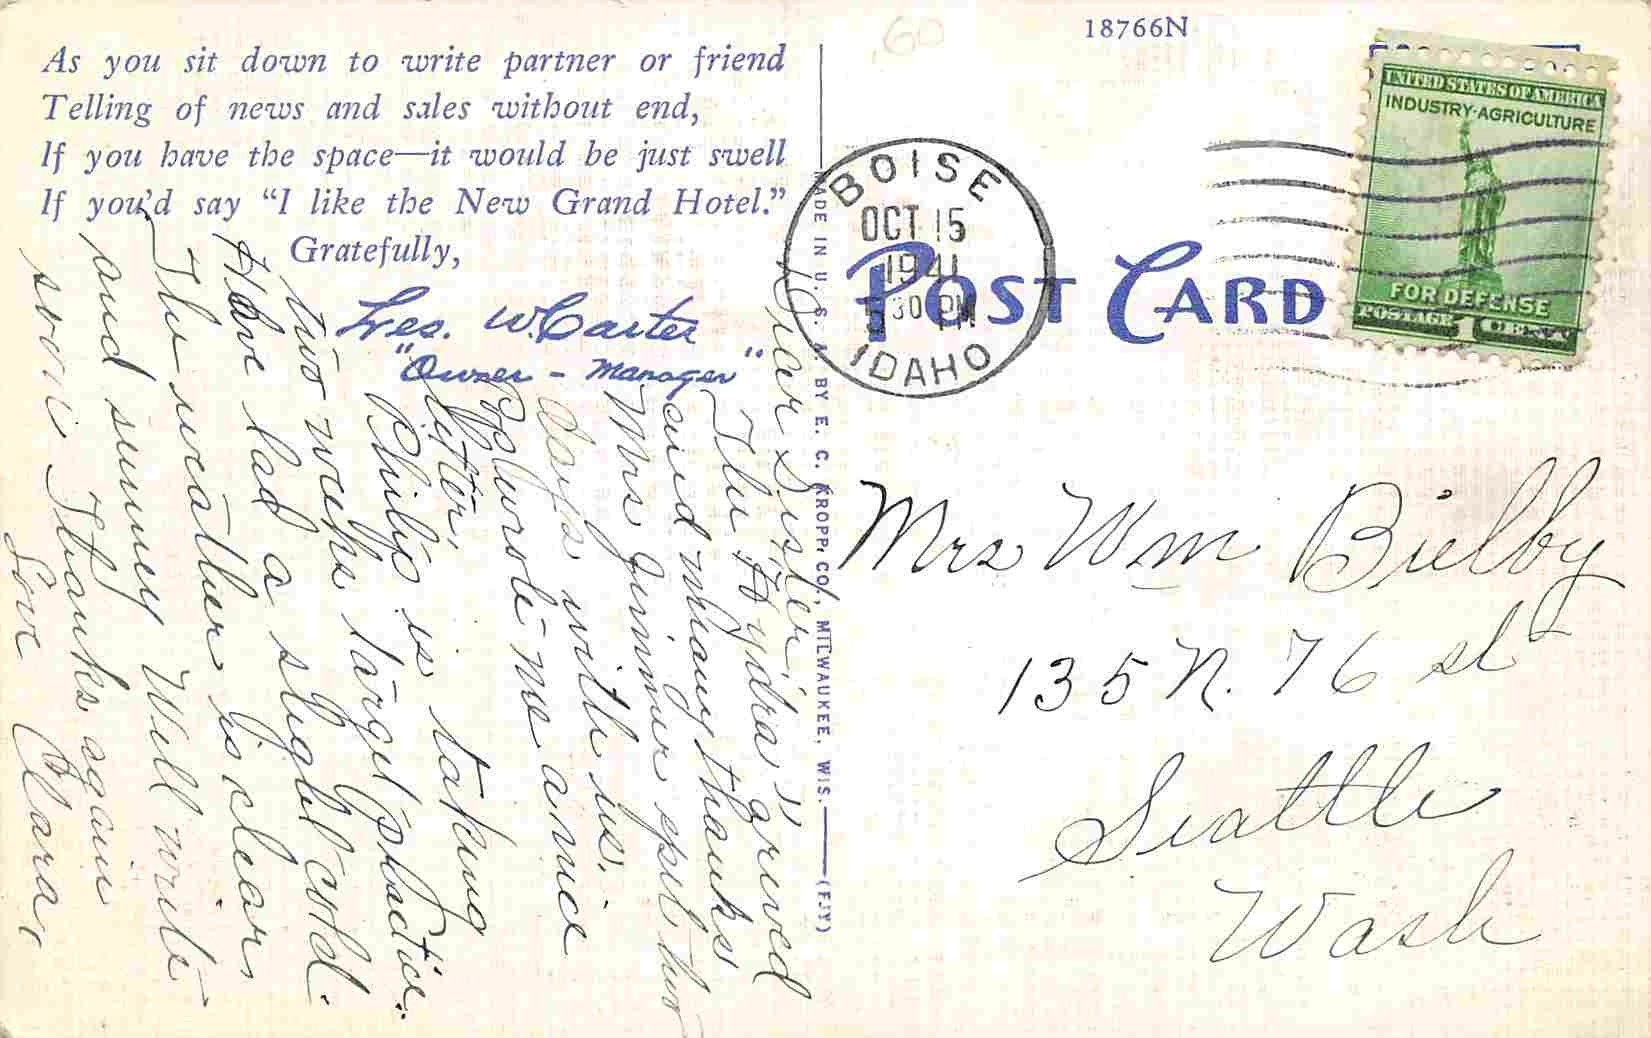 18766N
.60
As you sit down to write partner or friend
Telling of news and sales without end,
If you have the space—it would be just swell
If you'd say "I like the New Grand Hotel."
Gratefully,
Les. W. Carter
"Owner - Manager"
MADE IN U. S. A. BY E. C. KROPP CO., MILWAUKEE, WIS. (FJY)
POST CARD
BOISE
OCT 15
1941
30 PM
IDAHO
UNITED STATES OF AMERICA
INDUSTRY·AGRICULTURE
FOR DEFENSE
POSTAGE 1 CENT
Dear Sister,
The "Hydra's" arived
and many thanks
Mrs Jimmer spet two
days with us.
Ralph wrote me a nice
letter,
Philip is taking
two weeks target practice.
Have had a slight cold.
The weather is clear
and sunney Will write
soon Thanks again
Love Clara,
Mrs Wm Bielby
135 N. 76 st
Seattle
Wash